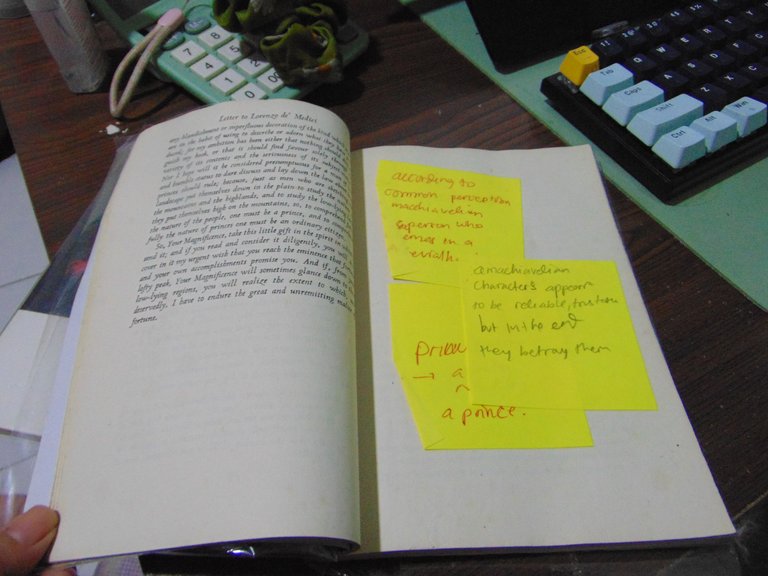 Letter to Lorenzo de' Medici
any blandishment or superfluous decoration of the kind which
are in the habit of using to describe or adorn what they have
for my ambition has been either that nothing should
my book, or that it should find favour solely through
variety of its contents and the seriousness of its subject
Nor I hope will it be considered presumptuous for a man of
and humble status to dare discuss and lay down the law about
princes should rule; because, just as men who are sketching
landscape put themselves down in the plain to study the
the mountains and the highlands, and to study the low-lying
they put themselves high on the mountains, so, to comprehend
the nature of the people, one must be a prince, and to comprehend
fully the nature of princes one must be an ordinary citizen.
So, Your Magnificence, take this little gift in the spirit in which
send it; and if you read and consider it diligently, you will
cover in it my urgent wish that you reach the eminence that
and your own accomplishments promise you. And if, from
lofty peak, Your Magnificence will sometimes glance down to
low-lying regions, you will realize the extent to which,
deservedly, I have to endure the great and unremitting malice
fortune.
according to
common perception
machiavelian
superson who
in a
a machiavelian
characters appear
to be reliable,
but in the end
they betray them
→ a
a prince.
7 8
4 5
1 2
0 00
Esc
Tab
Caps
Shift
Ctrl
Alt
Win
A S D F
Z X C